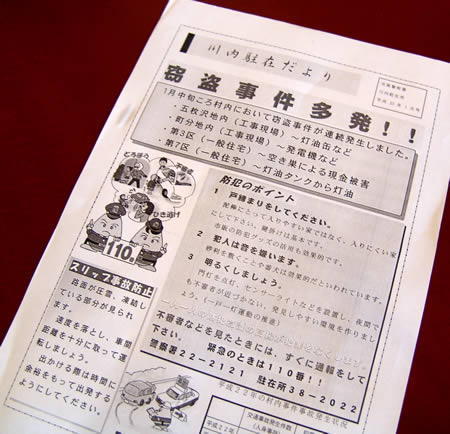 川内駐在だより
窃盗事件多発!!
1月中旬ころ村内において窃盗事件が連続発生しました。
・五枚沢地内（工事現場）～灯油缶など
・町分地内（工事現場）～発電機など
・第3区（一般住宅）～空き巣による現金被害
・第7区（一般住宅）～灯油タンクから灯油
どろぼう
ひき逃げ
110番
防犯のポイント
1 戸締まりをしてください。
泥棒にとって入りやすい家ではなく、入りにくい家
にして下さい。鍵掛けは基本です。
市販の防犯グッズの活用も効果的です。
2 犯人は音を嫌います。
砂利を敷くことや番犬は効果的だといわれています。
3 明るくしましょう。
門灯を点灯、センサーライトなどを設置し、夜間で
も不審者が近づかない、発見しやすい環境を作りまし
ょう。（一戸一灯運動の推進）
不審者などを見たときには、すぐに通報をして
下さい。 緊急のときは110番!!
警察署22-2121 駐在所38-2022
スリップ事故防止
路面が圧雪、凍結し
ている部分が見られ
ます。
速度を落とし、車間
距離を十分に取って運
転しましょう。
出かける際は時間に
余裕をもって出発する
ようにしてください。
平成22年の村内事件事故発生状況
交通事故発生件数
（人身事故）
平成22年